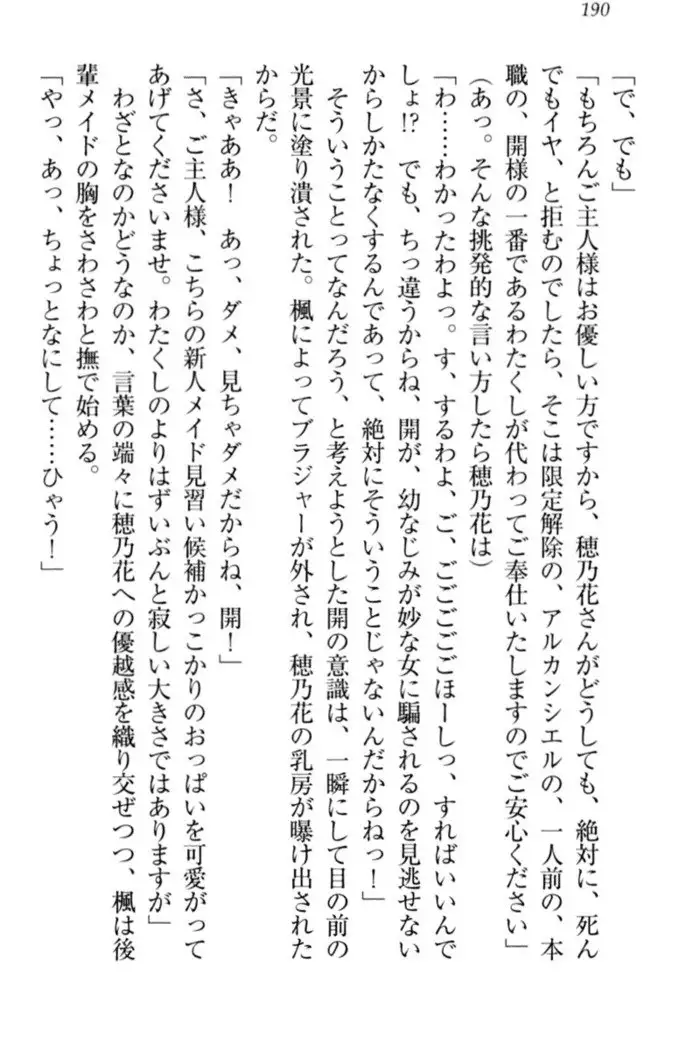 190
「で、でも」
「もちろんご主人様はお優しい方ですから、穂乃花さんがどうしても、絶対に、死ん
でもイヤ、と拒むのでしたら、そこは限定解除の、アルカンシエルの、一人前の、本
職の、開様の一番であるわたくしが代わってご奉仕いたしますのでご安心ください」
(あっ。そんな挑発的な言い方したら穂乃花は)
「わ……わかったわよっ。す、するわよ、ご、ごごごごほーしっ、すればいいんで
しょ!?　でも、ちっ違うからね、開が、幼なじみが妙な女に騙されるのを見逃せない
からしかたなくするんであって、絶対にそういうことじゃないんだからねっ！」
そういうことってなんだろう、と考えようとした開の意識は、一瞬にして目の前の
光景に塗り潰された。楓によってブラジャーが外され、穂乃花の乳房が曝け出された
からだ。
「きゃああ！　あっ、ダメ、見ちゃダメだからね、開！」
「さ、ご主人様、こちらの新人メイド見習い候補かっこかりのおっぱいを可愛がって
あげてくださいませ。わたくしのよりはずいぶんと寂しい大きさではありますが」
わざとなのかどうなのか、言葉の端々に穂乃花への優越感を織り交ぜつつ、楓は後
輩メイドの胸をさわさわと撫で始める。
「やっ、あっ、ちょっとなにして……ひゃう！」